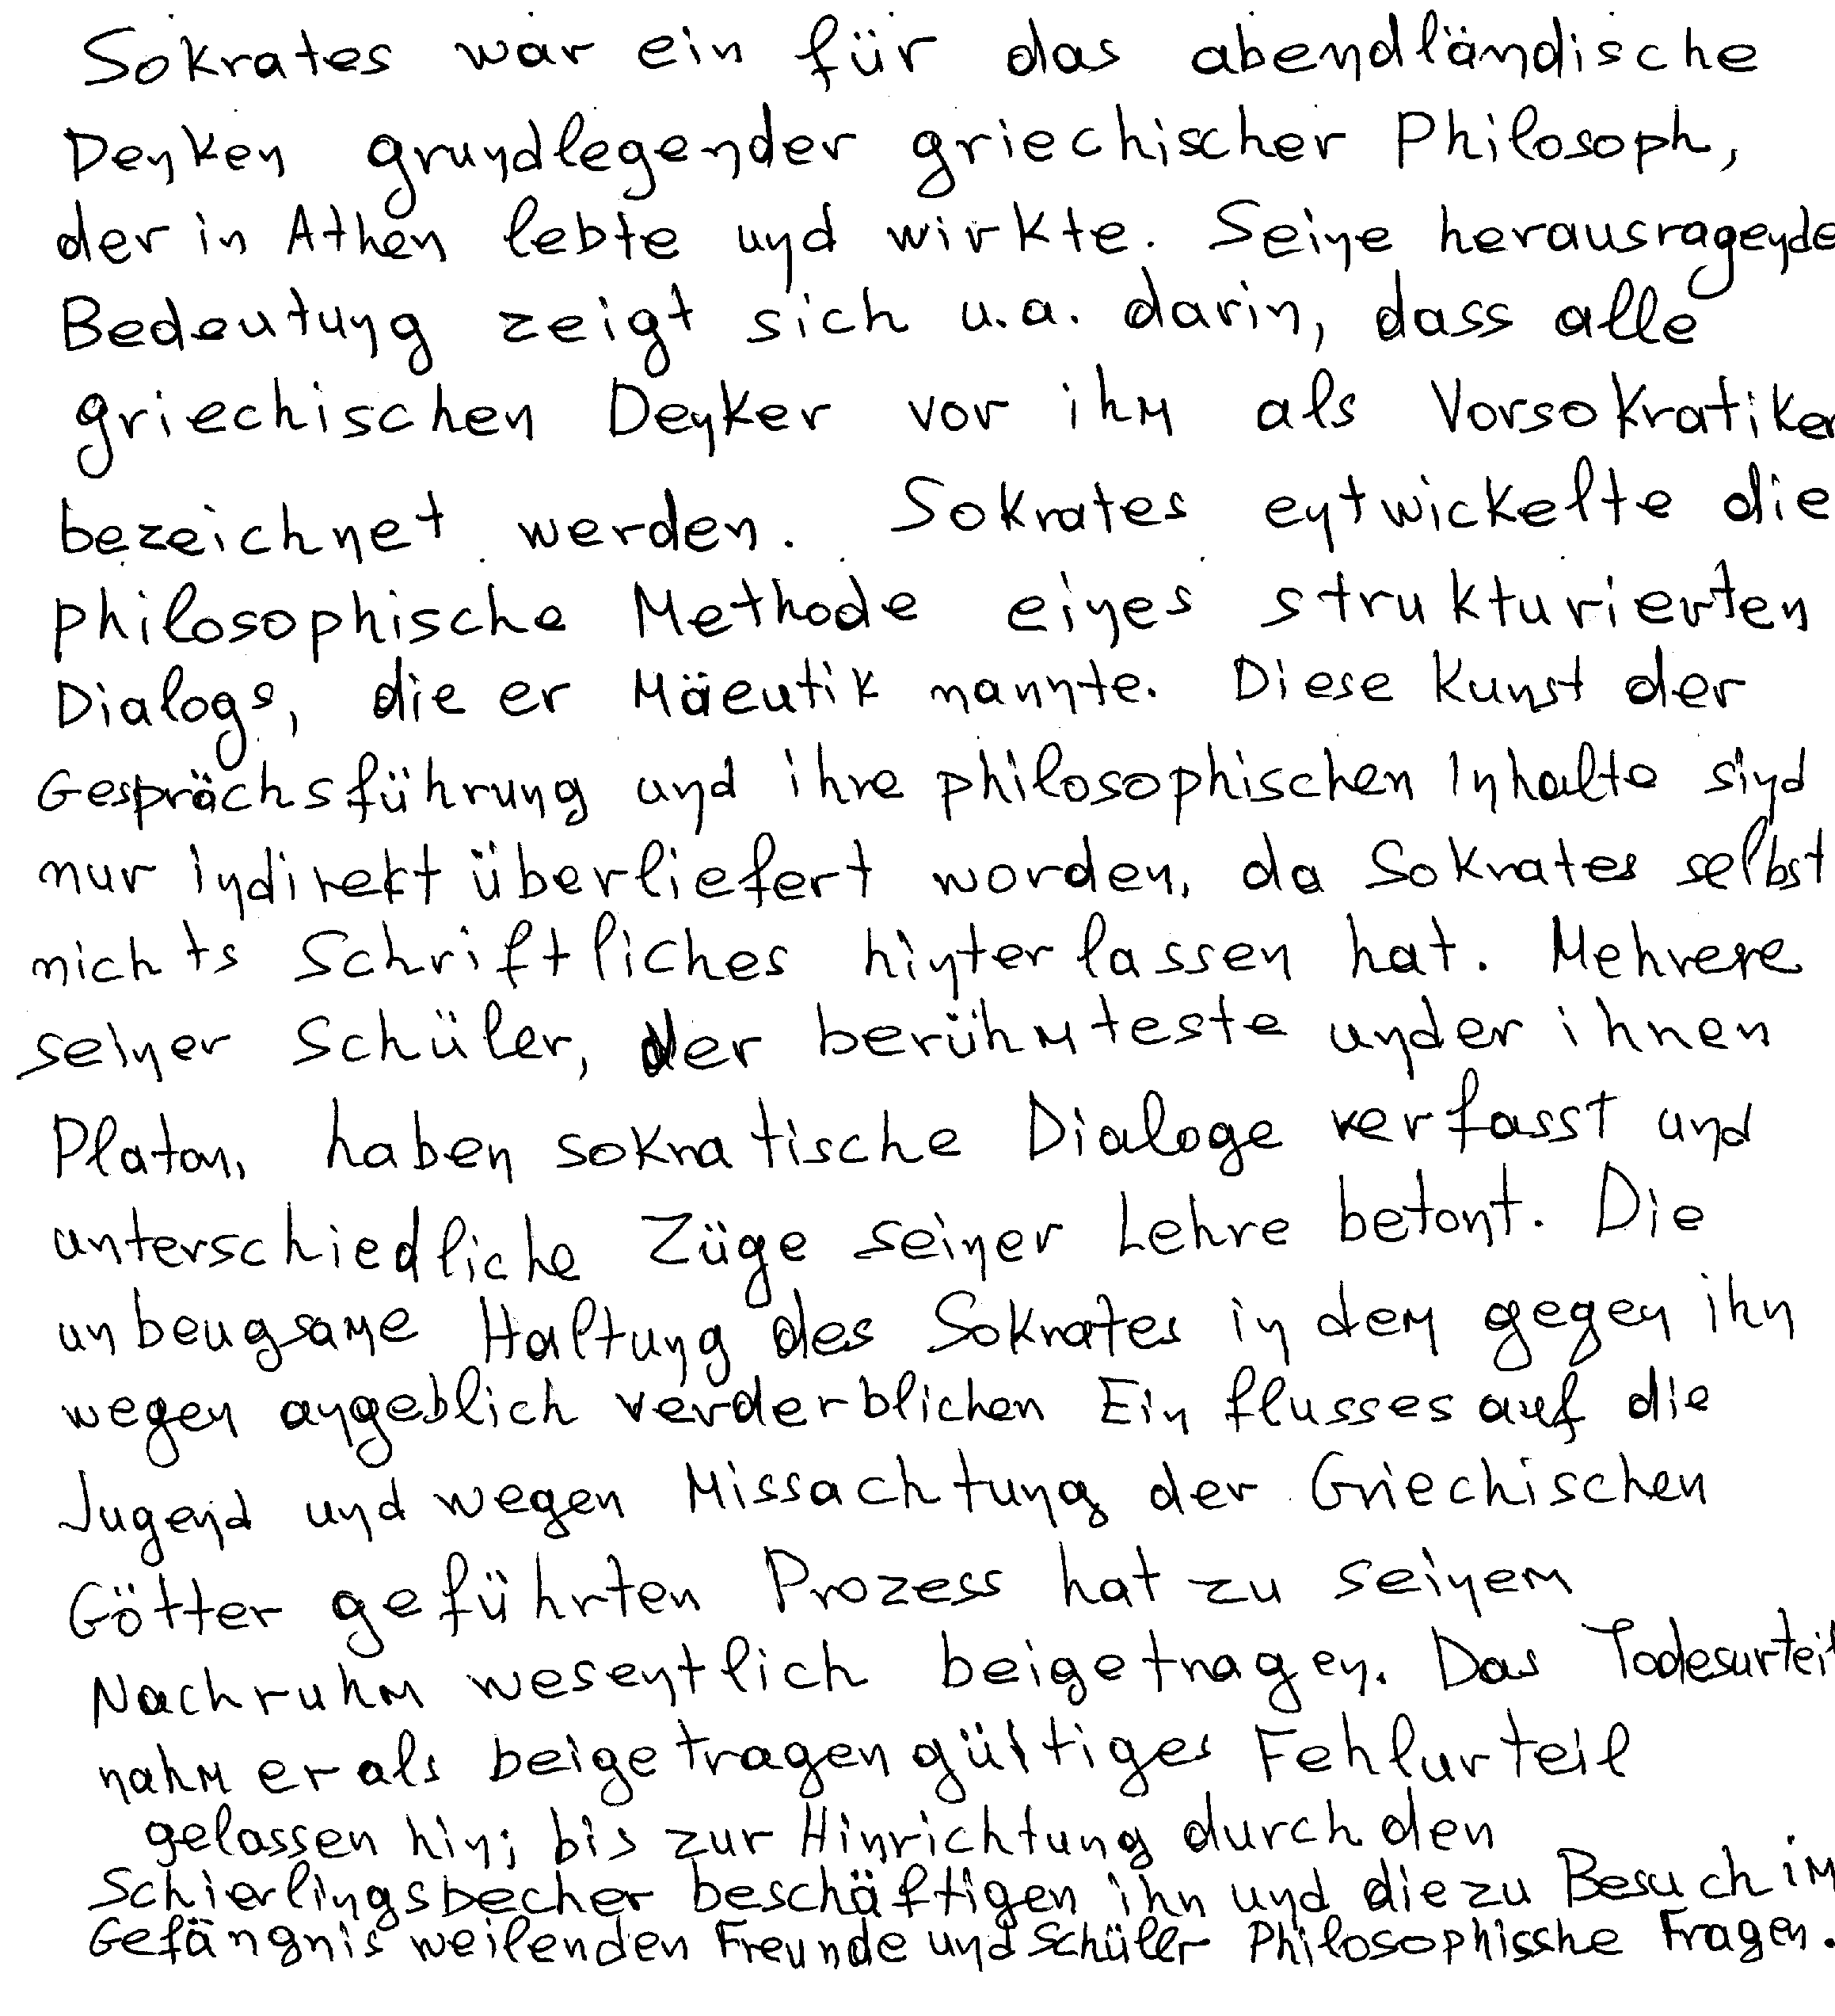 Sokrates war ein für das abendländische
Denken grundlegender griechischer Philosoph,
der in Athen lebte und wirkte. Seine herausragende
Bedeutung zeigt sich u.a. darin, dass alle
griechischen Denker vor ihm als Vorsokratiker
bezeichnet werden. Sokrates entwickelte die
philosophische Methode eines strukturierten
Dialogs, die er Mäeutik nannte. Diese Kunst der
Gesprächsführung und ihre philosophischen Inhalte sind
nur indirekt überliefert worden, da Sokrates selbst
nichts Schriftliches hinterlassen hat. Mehrere
seiner Schüler, der berühmteste under ihnen
Platon, haben sokratische Dialoge verfasst und
unterschiedliche Züge seiner Lehre betont. Die
unbeugsame Haltung des Sokrates in dem gegen ihn
wegen angeblich verderblichen Einflusses auf die
Jugend und wegen Missachtung der Griechischen
Götter geführten Prozess hat zu seinem
Nachruhm wesentlich beigetragen. Das Todesurteil
nahm er als beigetragen gültiges Fehlurteil
gelassen hin; bis zur Hinrichtung durch den
Schierlingsbecher beschäftigen ihn und die zu Besuch im
Gefängnis weilenden Freunde und Schüler Philosophisshe Fragen.